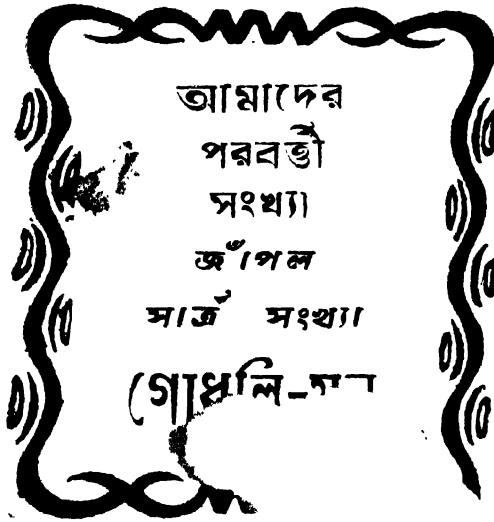 আমাদের
পরবর্ত্তী
সংখ্যা
জাঁপল
সার্ত্র সংখ্যা
গোধূলি-